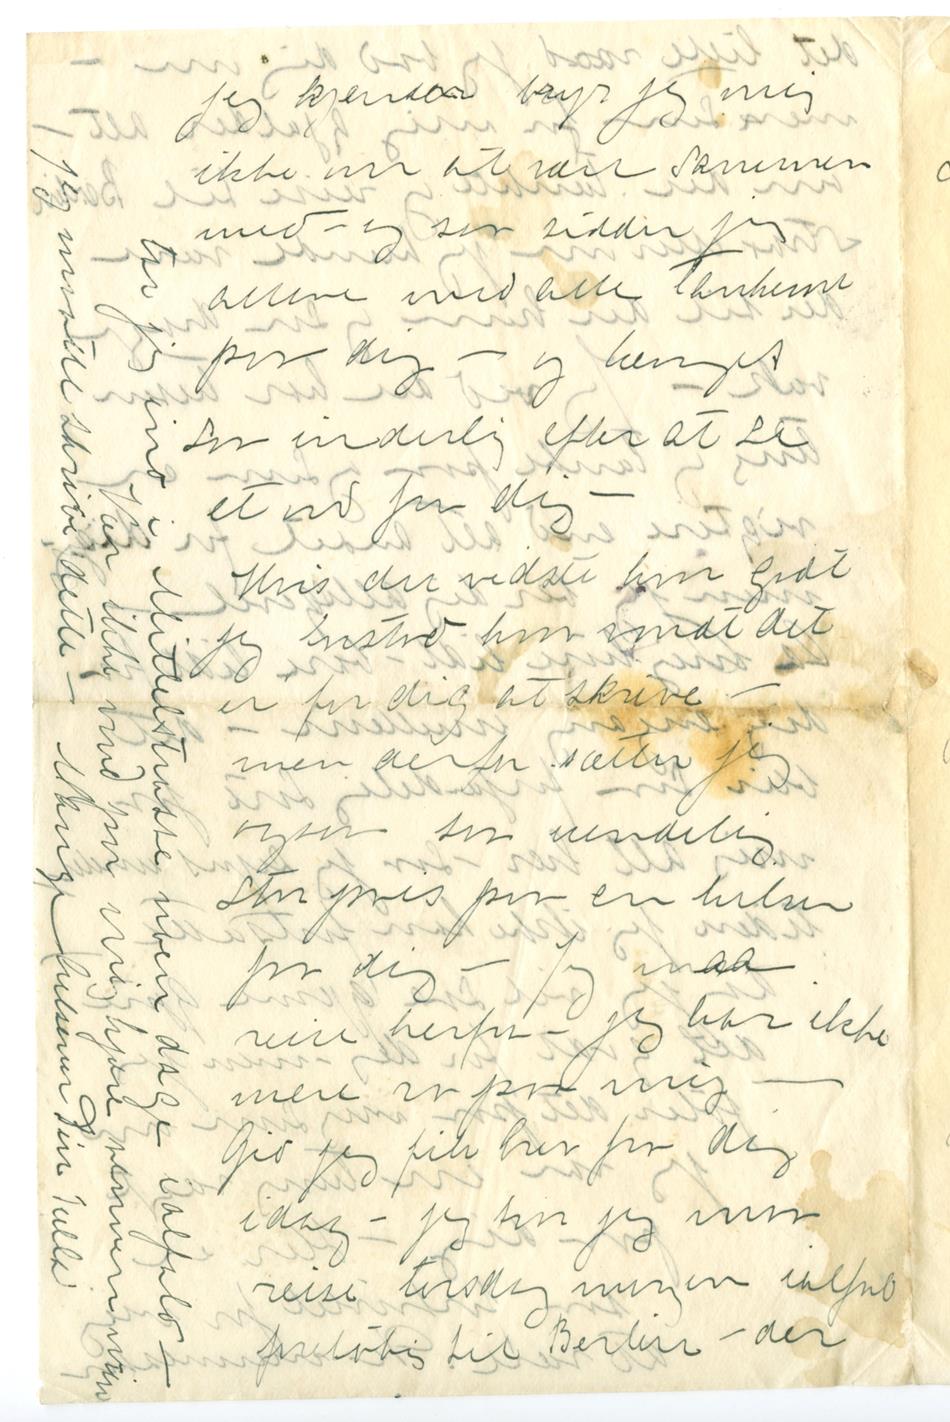 jeg kjender bryr jeg mig
ikke om at være sammen
med – og saa sidder jeg
allene med alle Tankerne
paa dig – og længes
saa inderlig efter at se
et ord fra dig –
Hvis du vidste hvor godt
jeg forstod hvor vondt det
er for dig at skrive –
men derfor sætter jeg
ogsaa saa uendelig
stor pris paa en hilsen
fra dig – Jeg maa
reise herfra – jeg har ikke
mere ro paa mig –
Gid jeg fik brev fra dig
idag – jeg tror jeg maa
reise torsdag morgen ialfald
foreløbig til Berlin – der
tar jeg ind i Mittelstrasse noen dage ialfald –
Vær ikke vond paa mig kjære venner min
jeg maatte skrive dette – Mange hilsener Din Tulla